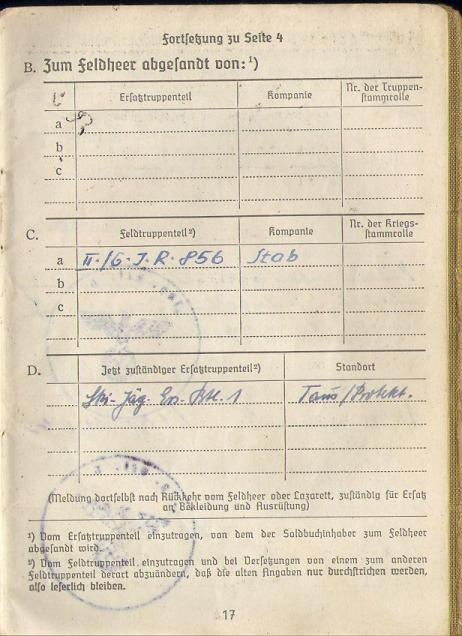 Fortsetzung zu Seite 4
B. Zum Feldheer abgesandt von:¹)
Ersatztruppenteil Kompanie Nr. der Truppen-
stammrolle
a
b
c
C. Feldtruppenteil²) Kompanie Nr. der Kriegs-
stammrolle
a II./G.J.R. 856 Stab
b
c
D. Jetzt zuständiger Ersatztruppenteil²) Standort
Ski-Jäg. Ers. Btl. 1 Taus/Protekt.
(Meldung dortselbst nach Rückkehr vom Feldheer oder Lazarett, zuständig für Ersatz
an Bekleidung und Ausrüstung)
¹) Vom Ersatztruppenteil einzutragen, von dem der Soldbuchinhaber zum Feldheer
abgesandt wird.
²) Vom Feldtruppenteil einzutragen und bei Versetzungen von einem zum anderen
Feldtruppenteil derart abzuändern, daß die alten Angaben nur durchstrichen werden,
also leserlich bleiben.
17